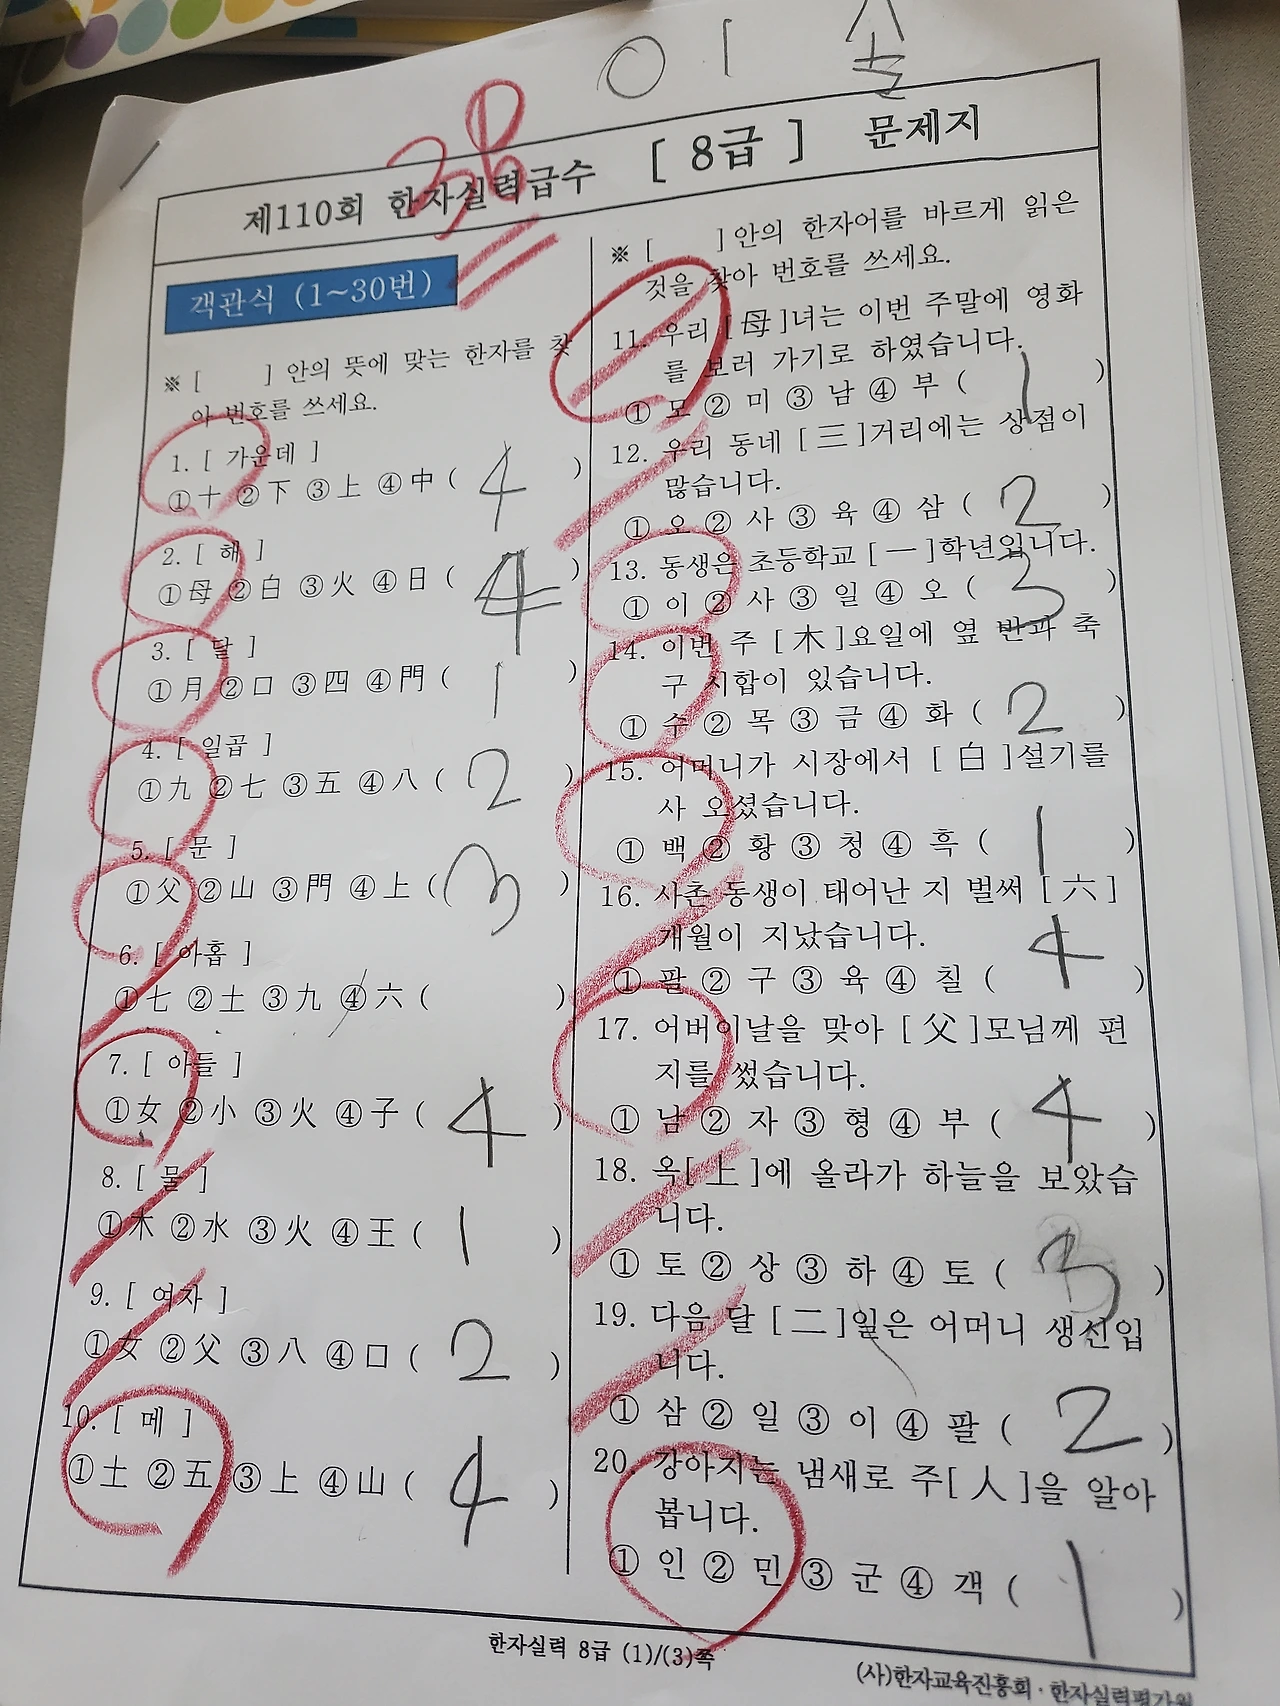 이솔
38
제110회 한자실력급수 [ 8급 ] 문제지
객관식 (1~30번)
※ [ ] 안의 뜻에 맞는 한자를 찾
아 번호를 쓰세요.
1. [ 가운데 ]
①十 ②下 ③上 ④中 ( 4 )
2. [ 해 ]
①母 ②白 ③火 ④日 ( 4 )
3. [ 달 ]
①月 ②口 ③四 ④門 ( 1 )
4. [ 일곱 ]
①九 ②七 ③五 ④八 ( 2 )
5. [ 문 ]
①父 ②山 ③門 ④上 ( 3 )
6. [ 아홉 ]
①七 ②土 ③九 ④六 ( )
7. [ 아들 ]
①女 ②小 ③火 ④子 ( 4 )
8. [ 물 ]
①木 ②水 ③火 ④王 ( 1 )
9. [ 여자 ]
①女 ②父 ③八 ④口 ( 2 )
10. [ 메 ]
①土 ②五 ③上 ④山 ( 4 )
※ [ ] 안의 한자어를 바르게 읽은
것을 찾아 번호를 쓰세요.
11. 우리 [ 母 ]녀는 이번 주말에 영화
를 보러 가기로 하였습니다.
① 모 ② 미 ③ 남 ④ 부 ( 1 )
12. 우리 동네 [ 三 ]거리에는 상점이
많습니다.
① 오 ② 사 ③ 육 ④ 삼 ( 2 )
13. 동생은 초등학교 [ 一 ]학년입니다.
① 이 ② 사 ③ 일 ④ 오 ( 3 )
14. 이번 주 [ 木 ]요일에 옆 반과 축
구 시합이 있습니다.
① 수 ② 목 ③ 금 ④ 화 ( 2 )
15. 어머니가 시장에서 [ 白 ]설기를
사 오셨습니다.
① 백 ② 황 ③ 청 ④ 흑 ( 1 )
16. 사촌 동생이 태어난 지 벌써 [ 六 ]
개월이 지났습니다.
① 팔 ② 구 ③ 육 ④ 칠 ( 4 )
17. 어버이날을 맞아 [ 父 ]모님께 편
지를 썼습니다.
① 남 ② 자 ③ 형 ④ 부 ( 4 )
18. 옥[ 上 ]에 올라가 하늘을 보았습
니다.
① 토 ② 상 ③ 하 ④ 토 ( 3 )
19. 다음 달 [ 二 ]일은 어머니 생신입
니다.
① 삼 ② 일 ③ 이 ④ 팔 ( 2 )
20. 강아지는 냄새로 주[ 人 ]을 알아
봅니다.
① 인 ② 민 ③ 군 ④ 객 ( 1 )
한자실력 8급 (1)/(3)쪽
(사)한자교육진흥회·한자실력평가원